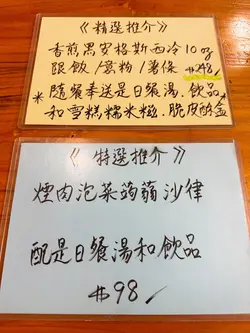 《精選推介》
香煎黑安格斯西冷10oz
跟飯/意粉/薯條 $248/
*隨餐奉送是日餐湯.飲品*
和雪糕糯米糍.脆皮
《特選推介》
煙肉泡菜蒟蒻沙律
配是日餐湯和飲品
$98/